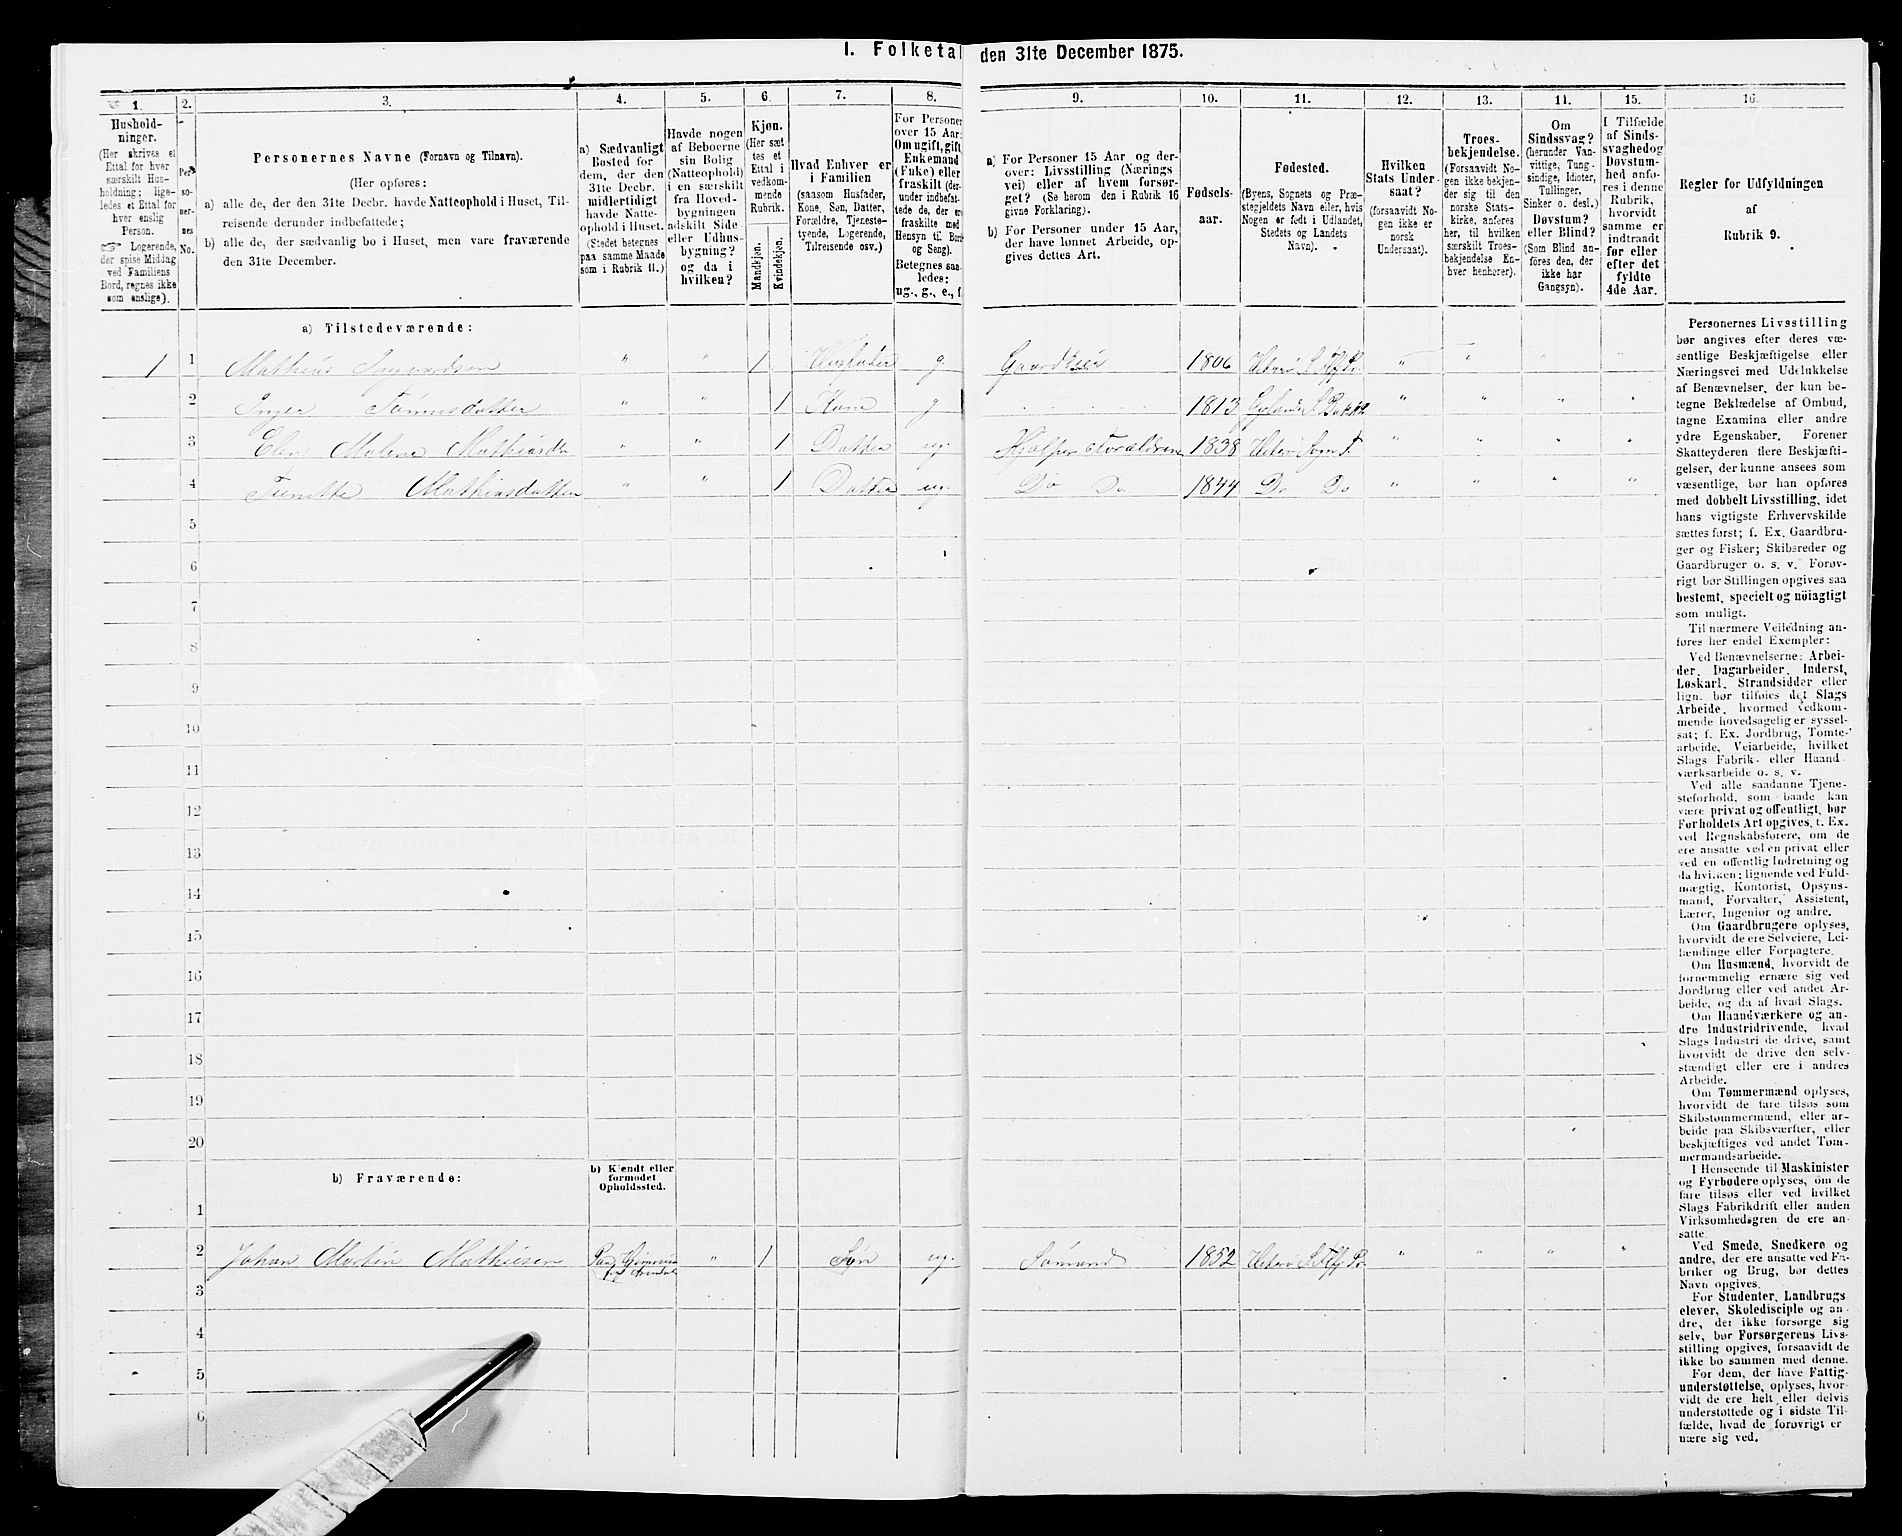 I. Folketal den 31te December 1875.
1. 2. 3. 4. 5. 6. 7. 8. 9. 10. 11. 12. 13. 14. 15. 16.
Hushold-
ninger.
(Her skrives et
Ettal for hver
særskilt Hus-
holdning; lige-
ledes et Ettal for
hver enslig
Person.
☞ Logerende,
der spise Middag
ved Familiens
Bord, regnes ikke
som enslige).
Per-
so-
ner-
nes
No.
Personernes Navne (Fornavn og Tilnavn).
(Her opføres:
a) alle de, der den 31te Decbr. havde Natteophold i Huset, Til-
reisende derunder indbefattede;
b) alle de, der sædvanlig bo i Huset, men vare fraværende
den 31te December.
a) Sædvanligt
Bosted for
dem, der den
31te Decbr.
midlertidigt
havde Natte-
ophold i Huset.
(Stedet betegnes
paa samme Maade
som i Rubrik 11.)
Havde nogen
af Beboerne
sin Bolig
(Natteophold)
i en særskilt
fra Hoved-
bygningen
adskilt Side
eller Udhus-
bygning?
og da i
hvilken?
Kjøn.
(Her sæt
tes et
Ettal i
vedkom-
mende
Rubrik.
Mandkjøn.
Kvindekjøn.
Hvad Enhver er
i Familien
(saasom Husfader,
Kone, Søn, Datter,
Forældre, Tjeneste-
tyende, Logerende,
Tilreisende osv.)
For Personer
over 15 Aar:
Om ugift, gift,
Enkemand
(Enke) eller
fraskilt (der-
under indbefat-
tede de, der er
fraskilte med
Hensyn til Bord
og Seng).
Betegnes saa-
ledes:
ug., g., e., f.
a) For Personer 15 Aar og der-
over: Livsstilling (Nærings
vei) eller af hvem forsør-
get? (Se herom den i Rubrik 16
givne Forklaring).
b) For Personer under 15 Aar,
der have lønnet Arbeide, op-
gives dettes Art.
Fødsels-
aar.
Fødested.
(Byens, Sognets og Præ-
stegjeldets Navn eller, hvis
Nogen er født i Udlandet,
Stedets og Landets
Navn).
Hvilken
Stats Under-
saat?
(forsaavidt No-
gen ikke er
norsk
Undersaat).
Troes-
bekjendelse.
(Forsaavidt No-
gen ikke bekjen-
der sig til den
norske Stats-
kirke, anføres
her, til hvilken
særskilt Troes-
bekjendelse En-
hver henhører).
Om
Sindssvag?
(herunder Van-
vittige, Tung-
sindige, Idioter,
Tullinger,
Sinker o. desl.)
Døvstum?
eller Blind?
(Som Blind an-
føres den, der
ikke har
Gangsyn).
I Tilfælde
af Sinds-
svaghed og
Døvstum-
hed anfø-
res i denne
Rubrik,
hvorvidt
samme er
indtraadt
før eller
efter det
fyldte
4de Aar.
Regler for Udfyldningen
af
Rubrik 9.
a) Tilstedeværende:
1 1 Mathias Ingvardsen " " 1 Husfader g. Gaardbruger 1806 Hiterø S. " " " "
2 Inger Tønnesdatter " " 1 Kone g 1813 Gylands S. Bakke " " " "
3 Elen Malene Mathiasdtr " " 1 Datter ug. Hjælper Forældrene 1838 Hiterø Sogn " " " "
4 Tonette Mathiasdatter " " 1 Datter ug. Do Do 1844 Do Do " " " "
5
6
7
8
9
10
11
12
13
14
15
16
17
18
19
20
b) Fraværende:
b) Kjendt eller
formodet
Opholdssted.
1
2 Johan Martin Mathiesen " 1 Søn ug. Sømand 1852 Hiterø S. " " " "
3
4
5
6
Personernes Livsstilling
bør angives efter deres væ-
sentlige Beskjæftigelse eller
Næringsvei med Udelukkelse
af Benævnelser, der kun be-
tegne Beklædelse af Ombud,
tagne Examina eller andre
ydre Egenskaber. Forener
Skatteyderen flere Beskjæfti-
gelser, der kunne ansees som
væsentlige, bør han opføres
med dobbelt Livsstilling, idet
hans vigtigste Erhvervskilde
sættes først; f. Ex. Gaardbru-
ger og Fisker; Skibsreder og
Gaardbruger o. s. v. Forøv-
rigt bør Stillingen opgives saa
bestemt, specielt og nöiagtigt
som muligt.
Til nærmere Veiledning an-
føres her endel Exempler:
Ved Benævnelserne: Arbei-
der, Dagarbeider, Inderst,
Løskarl, Strandsidder eller
lign. bør tilføies det Slags
Arbeide, hvormed vedkom-
mende hovedsagelig er syssel-
sat; f. Ex. Jordbrug, Tomte-
arbeide, Veiarbeide, hvilket
Slags Fabrik- eller Haand
værksarbeide o. s. v.
Ved alle saadanne Tjene-
steforhold, som baade kan
være privat og offentligt, bør
Forholdets Art opgives, f. Ex.
ved Regnskabsførere, om de
ere ansatte ved en privat eller
ved en offentlig Indretning og
da hvilken; lignende ved Fuld-
mægtig, Kontorist, Opsyns-
mand, Forvalter, Assistent,
Lærer, Ingeniør og andre.
Om Gaardbrugere oplyses,
hvorvidt de ere Selveiere, Lei-
lændinge eller Forpagtere.
Om Husmænd, hvorvidt de
fornemmelig ernære sig ved
Jordbrug eller ved andet Ar-
beide, og da af hvad Slags.
Om Haandværkere og an-
dre Industridrivende, hvad
Slags Industri de drive, samt
hvorvidt de drive den selv-
stændigt eller ere i andres
Arbeide.
Om Tømmermænd oplyses,
hvorvidt de fare tilsøs som
Skibstømmermænd, eller ar-
beide paa Skibsværfter, eller
beskjæftiges ved andet Tøm-
mermandsarbeide.
I Henseende til Maskinister
og Fyrbødere oplyses, om de
fare tilsøs eller ved hvilket
Slags Fabrikdrift eller anden
Virksomhedsgren de ere an-
satte.
Ved Smede, Snedkere og
andre, der ere ansatte ved Fa-
briker og Brug, bør dettes
Navn opgives.
For Studenter, Landbrugs
elever, Skoledisciple og an-
dre, der ikke forsørge sig
selv, bør Forsørgerens Livs-
stilling opgives, forsaavidt de
ikke bo sammen med denne.
For dem, der have Fattig-
understøttelse, oplyses, hvor-
vidt de ere helt eller delvis
understøttede og i sidste Til-
fælde, hvad de forøvrigt er
nære sig ved.